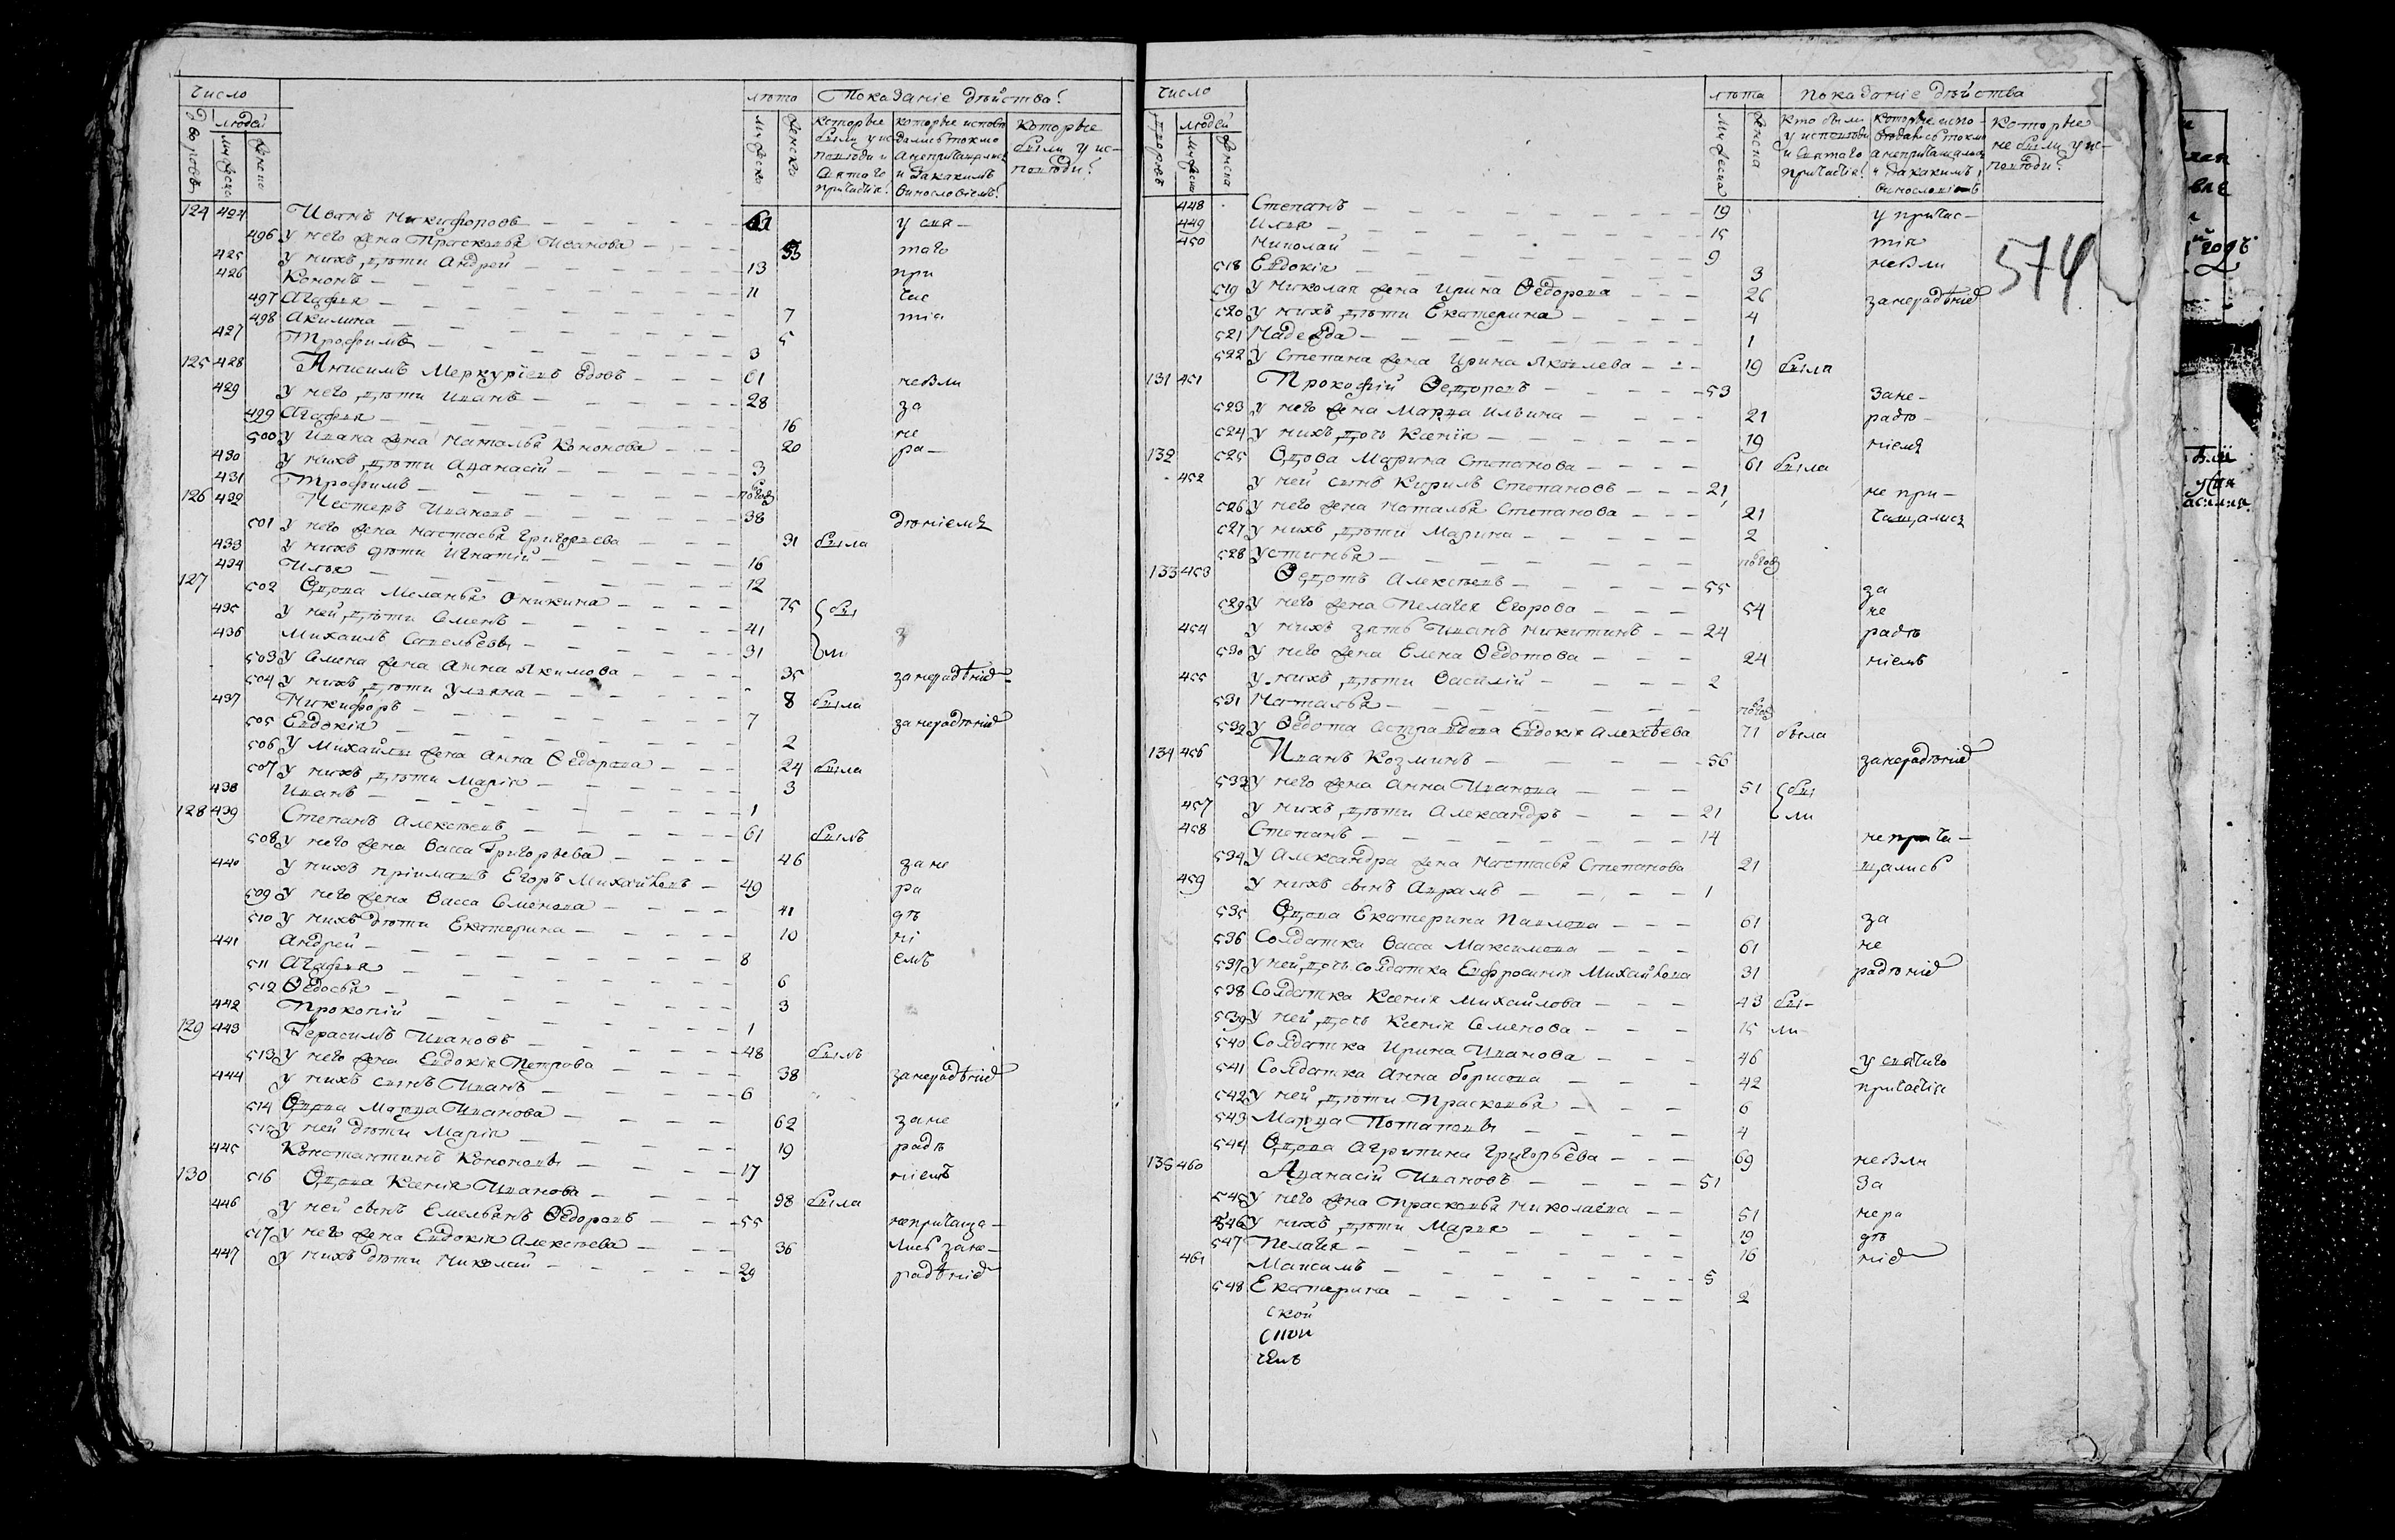 Число
лѣта Показаніе дѣйства:
Дворовъ людей мужеска женска
мужеска женска
которые были у исповѣди и святаго причастія: которые исповѣдались токмо а непричащались и закакимъ винословіемъ: которые были у исповѣди:
124 424 Иванъ Никифоровъ 61 у свя-
496 У него жена Прасковья Иванова 53 таго
425 У нихъ дѣти Андрей 13 при
426 Кононъ 11 час
497 Агафья 7 тія
498 Акилина 5
427 Трофимъ 3
125 428 Анисимъ Меркурiевъ вдовъ 61 небли
429 У него дѣти Иванъ 28 за
499 Агафья 16 не
500 У Ивана жена Наталья Кононова 20 ра-
430 У нихъ дѣти Афанасій 3
431 Трофимъ полгод
126 432 Нестеръ Ивановъ 38 дѣніемъ
501 У него жена Настасья Григорьева 31 была
433 У нихъ дѣти Игнатій 16
434 Илья 12
127 502 Вдова Меланья Оникина 75 бы
435 У ней дѣти Семенъ 41
436 Михаилъ Савельевы 31 ли
503 У Семена жена Анна Якимова 35 занерадѣніе
504 У нихъ дѣти Ульяна 8 была
437 Никифоръ 7 занерадѣніе
505 Евдокія 2
506 У Михайлы жена Анна Ѳедорова 24 была
507 У нихъ дѣти Марія 3
438 Иванъ 1
128 439 Степанъ Алексѣевъ 61 былъ
508 У него жена Васса Григорьева 46 зане
440 У нихъ пріимашъ Егоръ Михайловъ 49 ра
509 У него жена Васса Семенова 41 дѣ
510 У нихъ дѣти Екатерина 10 ні
441 Андрей 8 емъ
511 Агафья 6
512 Ѳедосья 3
442 Прокопій 1
129 443 Герасимъ Ивановъ 48 былъ
513 У него жена Евдокія Петрова 38 занерадѣніе
444 У нихъ сынъ Иванъ 6
514 Вдова Марѳа Иванова 62 зане
515 У ней дѣти Марія 19 радѣ
445 Константинъ Кононовы 17 ніемъ
130 516 Вдова Ксенія Иванова 98 была
446 У ней сынъ Емельянъ Ѳедоровъ 55 непричаща-
517 У него жена Евдокія Алексѣева 36 лись зане-
447 У нихъ дѣти Николай 29 радѣніе
Число
лѣта показаніе дѣйства
дворовъ людей мужеска женска
мужеска женска
кто были у исповѣди и святаго причастія: которые исповѣдались токмо а непричащались и закакимъ винословіемъ которые не были у исповѣди:
574
448 Степанъ 19 у причас-
449 Илья 15 тія
450 Николай 9 небли
518 Евдокія 3
519 У Николая жена Ирина Ѳедорова 26 занерадѣніе
520 У нихъ дѣти Екатерина 4
521 Надежда 1
522 У Степана жена Ирина Яковлева 19 была
131 451 Прокофій Ѳедоровъ 53 зане-
523 У него жена Марѳа Ильина 21 радѣ-
524 У нихъ дочь Ксенія 19 ніемъ
132 525 Вдова Марина Степанова 61 была
452 У ней сынъ Кирилъ Степановъ 21 не при-
526 У него жена Наталья Степанова 21 чащались
527 У нихъ дѣти Марина 2
528 Устинья полгод
133 453 Ѳедотъ Алексѣевъ 55 за
529 У него жена Пелагея Егорова 54 не
454 У нихъ зять Иванъ Никитинъ 24 радѣ
530 У него жена Елена Ѳедотова 24 ніемъ
455 У нихъ дѣти Василій 2
531 Наталья полгод
532 У Ѳедота сестра вдова Евдокія Алексѣева 71 была
134 456 Иванъ Козминъ 56 занерадѣніе
533 У него жена Анна Иванова 51 бы
457 У нихъ дѣти Александръ 21 ли
458 Степанъ 14 неприча-
534 У Александра жена Настасья Степанова 21 щались
459 У нихъ сынъ Аврамъ 1
535 Вдова Екатерина Павлова 61 за
536 Солдатка Васса Максимова 61 не
537 У ней дочь солдатка Евфросинія Михайлова 31 радѣніе
538 Солдатка Ксенія Михайлова 43 бы-
539 У ней дочь Ксенія Семенова 15 ли
540 Солдатка Ирина Иванова 46 у святаго
541 Солдатка Анна Борисова 42 причастія
542 У ней дѣти Прасковья 6
543 Марѳа Потаповы 4
544 Вдова Агрипина Григорьева 69 небли
135 460 Афанасій Ивановъ 51 за
545 У него жена Прасковья Николаева 51 нера
546 У нихъ дѣти Марья 19 дѣ
547 Пелагея 16 ніе
461 Максимъ 5
548 Екатерина 2
ской